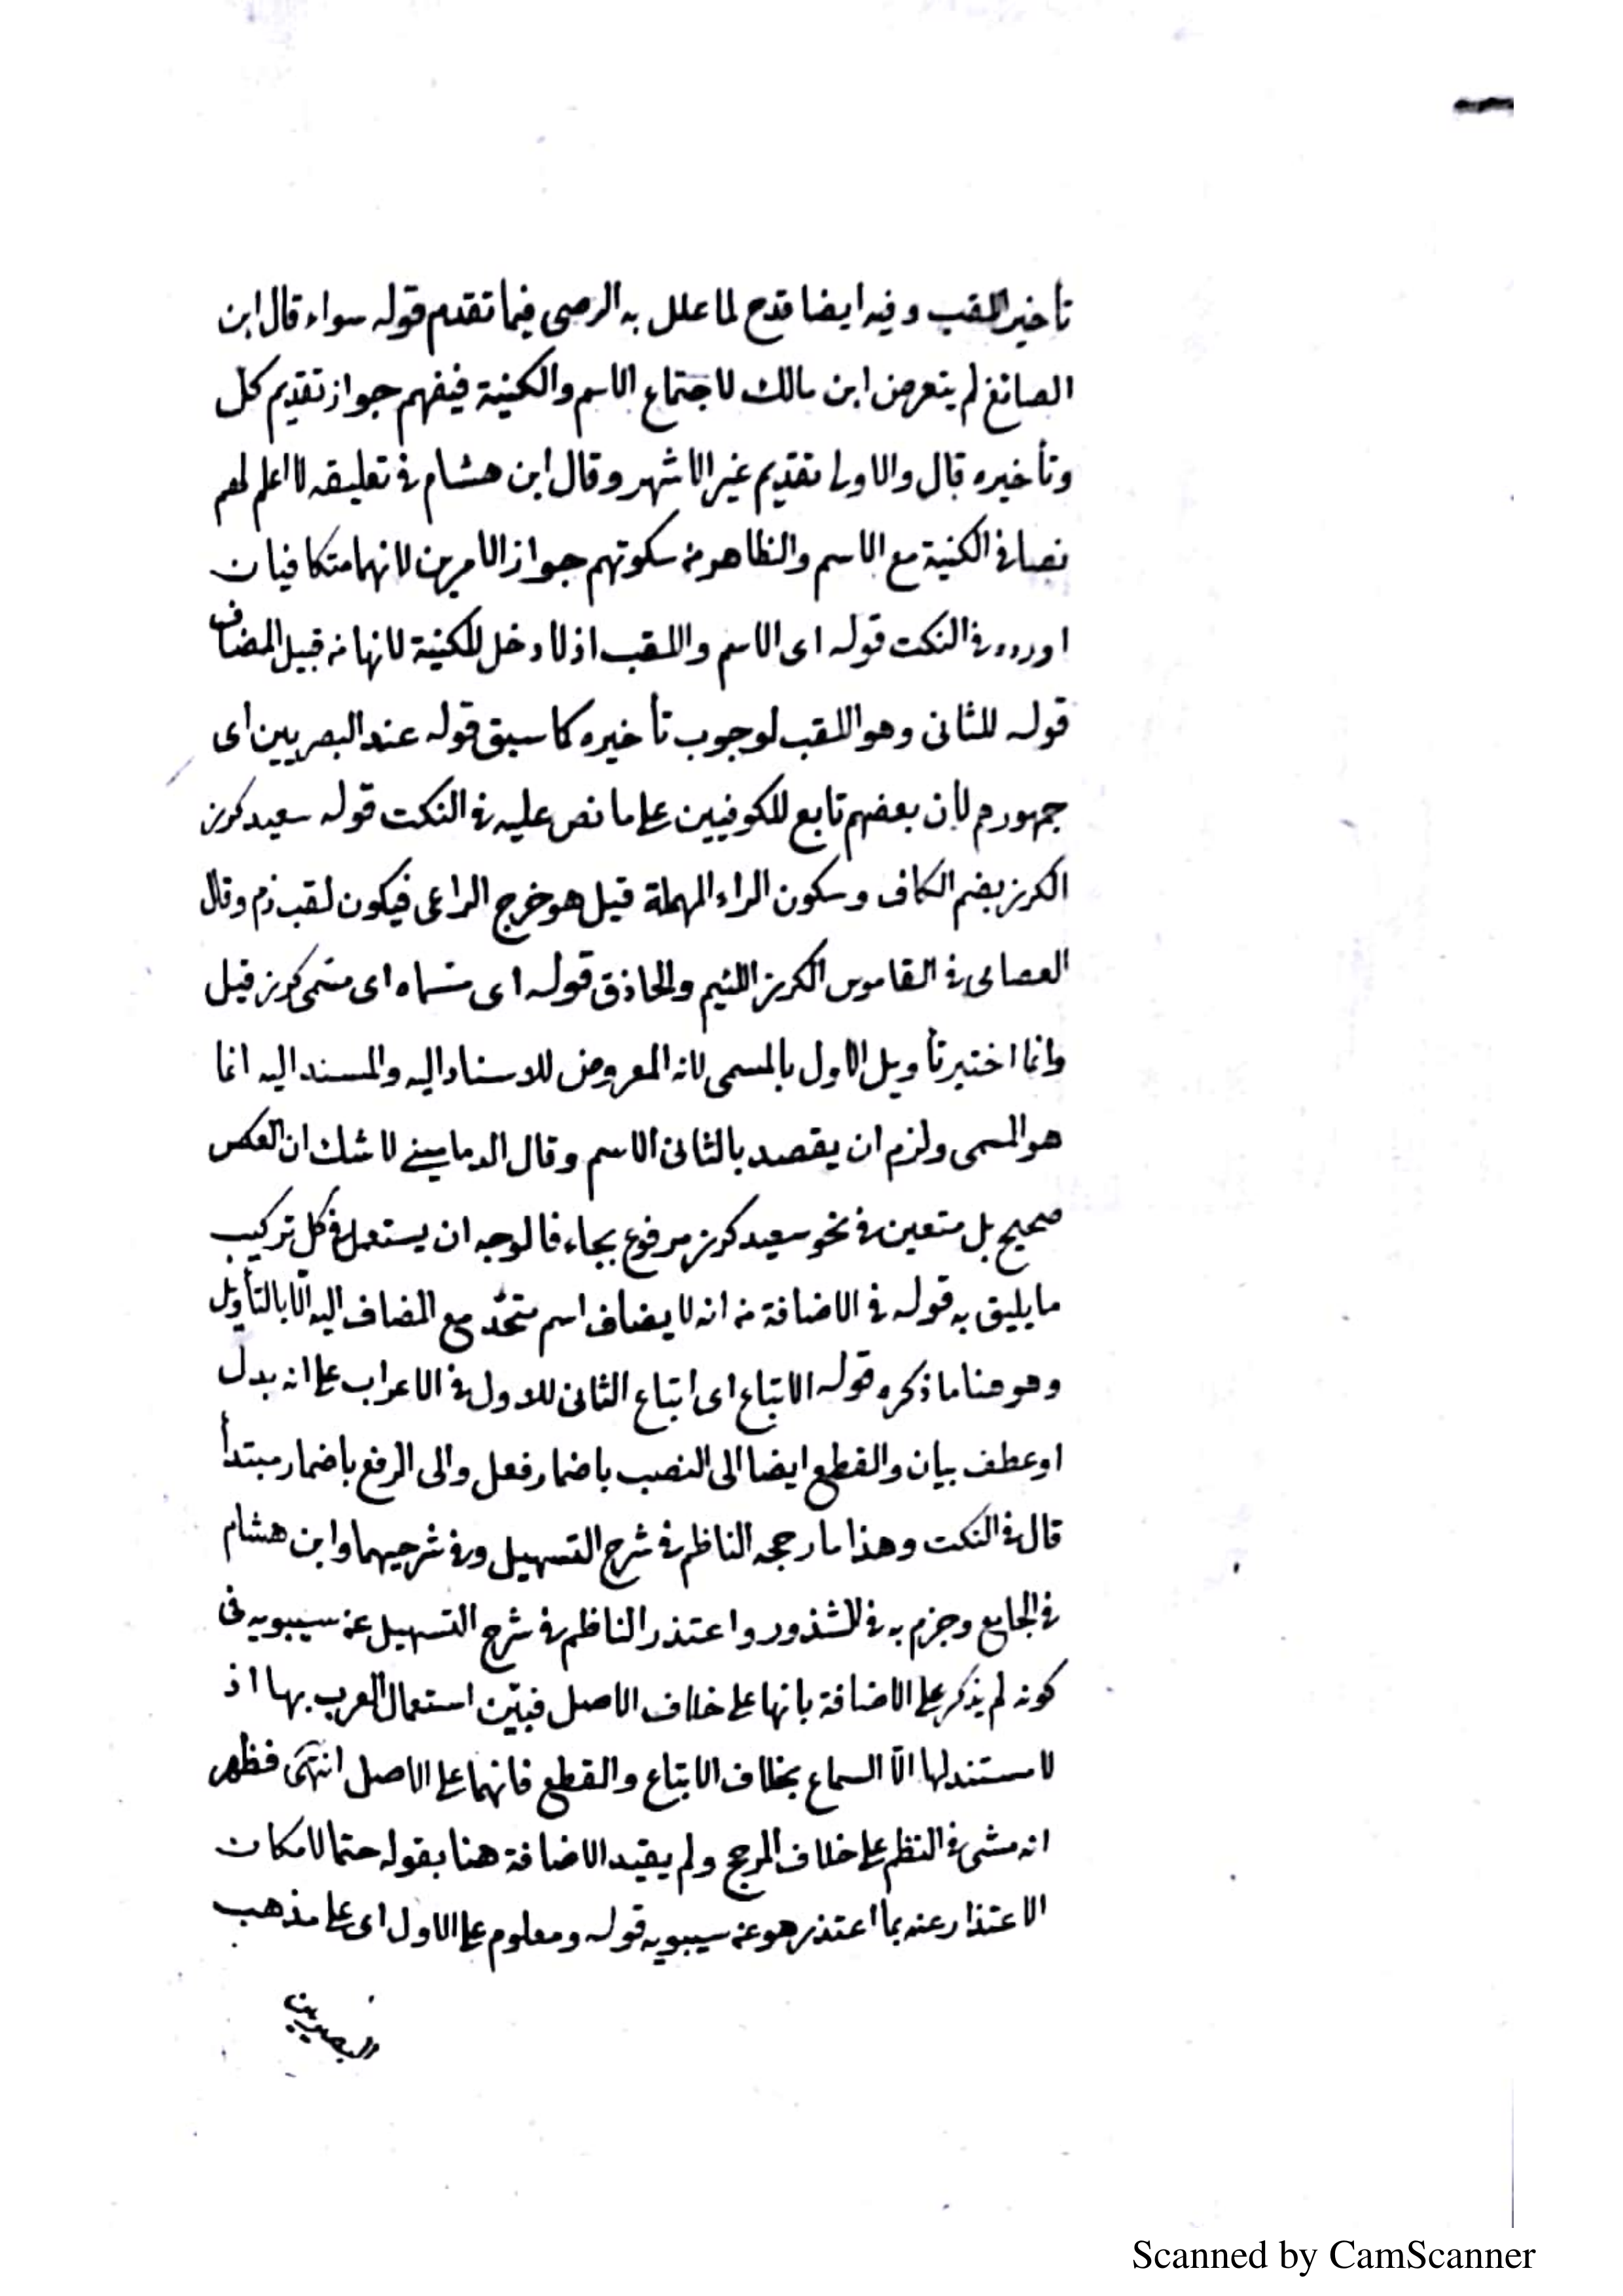 تأخير اللقب وفيه ايضا قدح لما علل به الرضى فيما تقدم قوله سواء قال ابن
الصائغ لم يتعرض ابن مالك لاجتماع الاسم والكنية فيفهم جواز تقديم كل
وتأخيره قال والاولى تقديم غير الاشهر وقال ابن هشام فى تعليقه لا اعلم لهم
نصا فى الكنية مع الاسم والظاهر من سكوتهم جواز الامرين لانهما متكافيان
اورده فى النكت قوله اى الاسم واللقب اذ لا دخل للكنية لانها من قبيل المضاف
قوله للثانى وهو اللقب لوجوب تأخيره كما سبق قوله عند البصريين اى
جمهورهم لأن بعضهم تابع للكوفيين على ما نص عليه فى النكت قوله سعيد كرز
الكرز بضم الكاف وسكون الراء المهملة قيل هو خرج الراعى فيكون لقب ذم وقال
العصامى فى القاموس الكرز اللئيم والحاذق قوله اى مسماه اى مسمى كرز قيل
وانما اختير تأويل الاول بالمسمى لانه المعروض للاسناد اليه والمسند اليه انما
هو المسمى ولزم ان يقصد بالثانى الاسم وقال الدمامينى لا شك ان العكس
صحيح بل متعين فى نحو سعيد كرز مرفوع بجاء فالوجه ان يستعمل فى كل تركيب
ما يليق به قوله فى الاضافة من انه لا يضاف اسم متحد مع المضاف اليه الّا بالتأويل
وهو هنا ما ذكره قوله الاتباع اى اتباع الثانى للاول فى الاعراب على انه بدل
او عطف بيان والقطع ايضا الى النصب باضمار فعل والى الرفع باضمار مبتدأ
قال فى النكت وهذا ما رجحه الناظم فى شرح التسهيل وفى شرحيهما وابن هشام
فى الجامع وجزم به فى الشذور واعتذر الناظم فى شرح التسهيل عن سيبويه فى
كونه لم يذكر على الاضافة بانها على خلاف الاصل فبيّن استعمال العرب بها اذ
لا مستند لها الّا السماع بخلاف الاتباع والقطع فانهما على الاصل انتهى فظهر
انه مشى فى النظم على خلاف المرجح ولم يقيد الاضافة هنا بقوله حتما لامكان
الاعتذار عنه بما اعتذر هو عن سيبويه قوله ومعلوم على الاول اى على مذهب
البصريين
Scanned by CamScanner